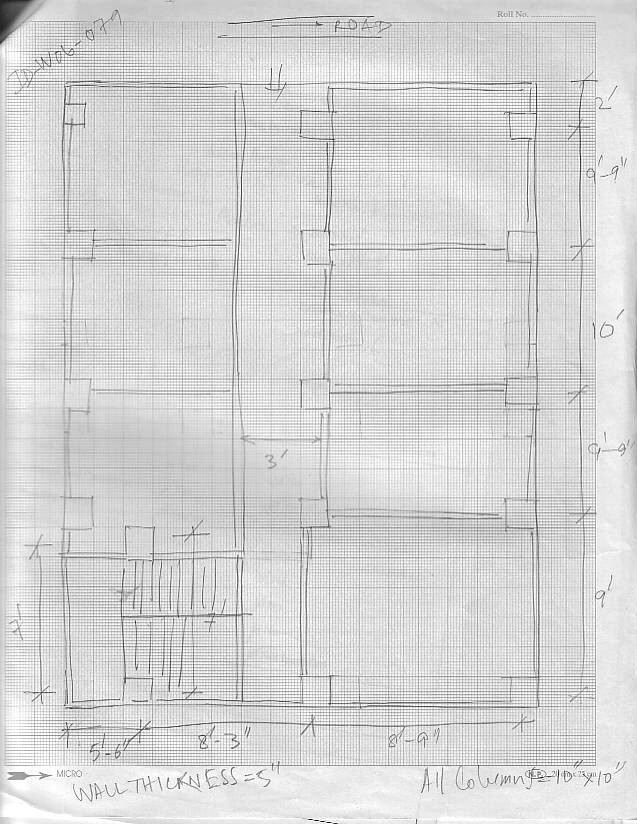 Roll No.
ID-W06-079
ROAD
2'
9'-9"
10'
9'-9"
3'
9'
7'
7'
5'-6"
8'-3"
8'-9"
MICRO
WALL THICKNESS = 5"
All Columns = 10" x 10"